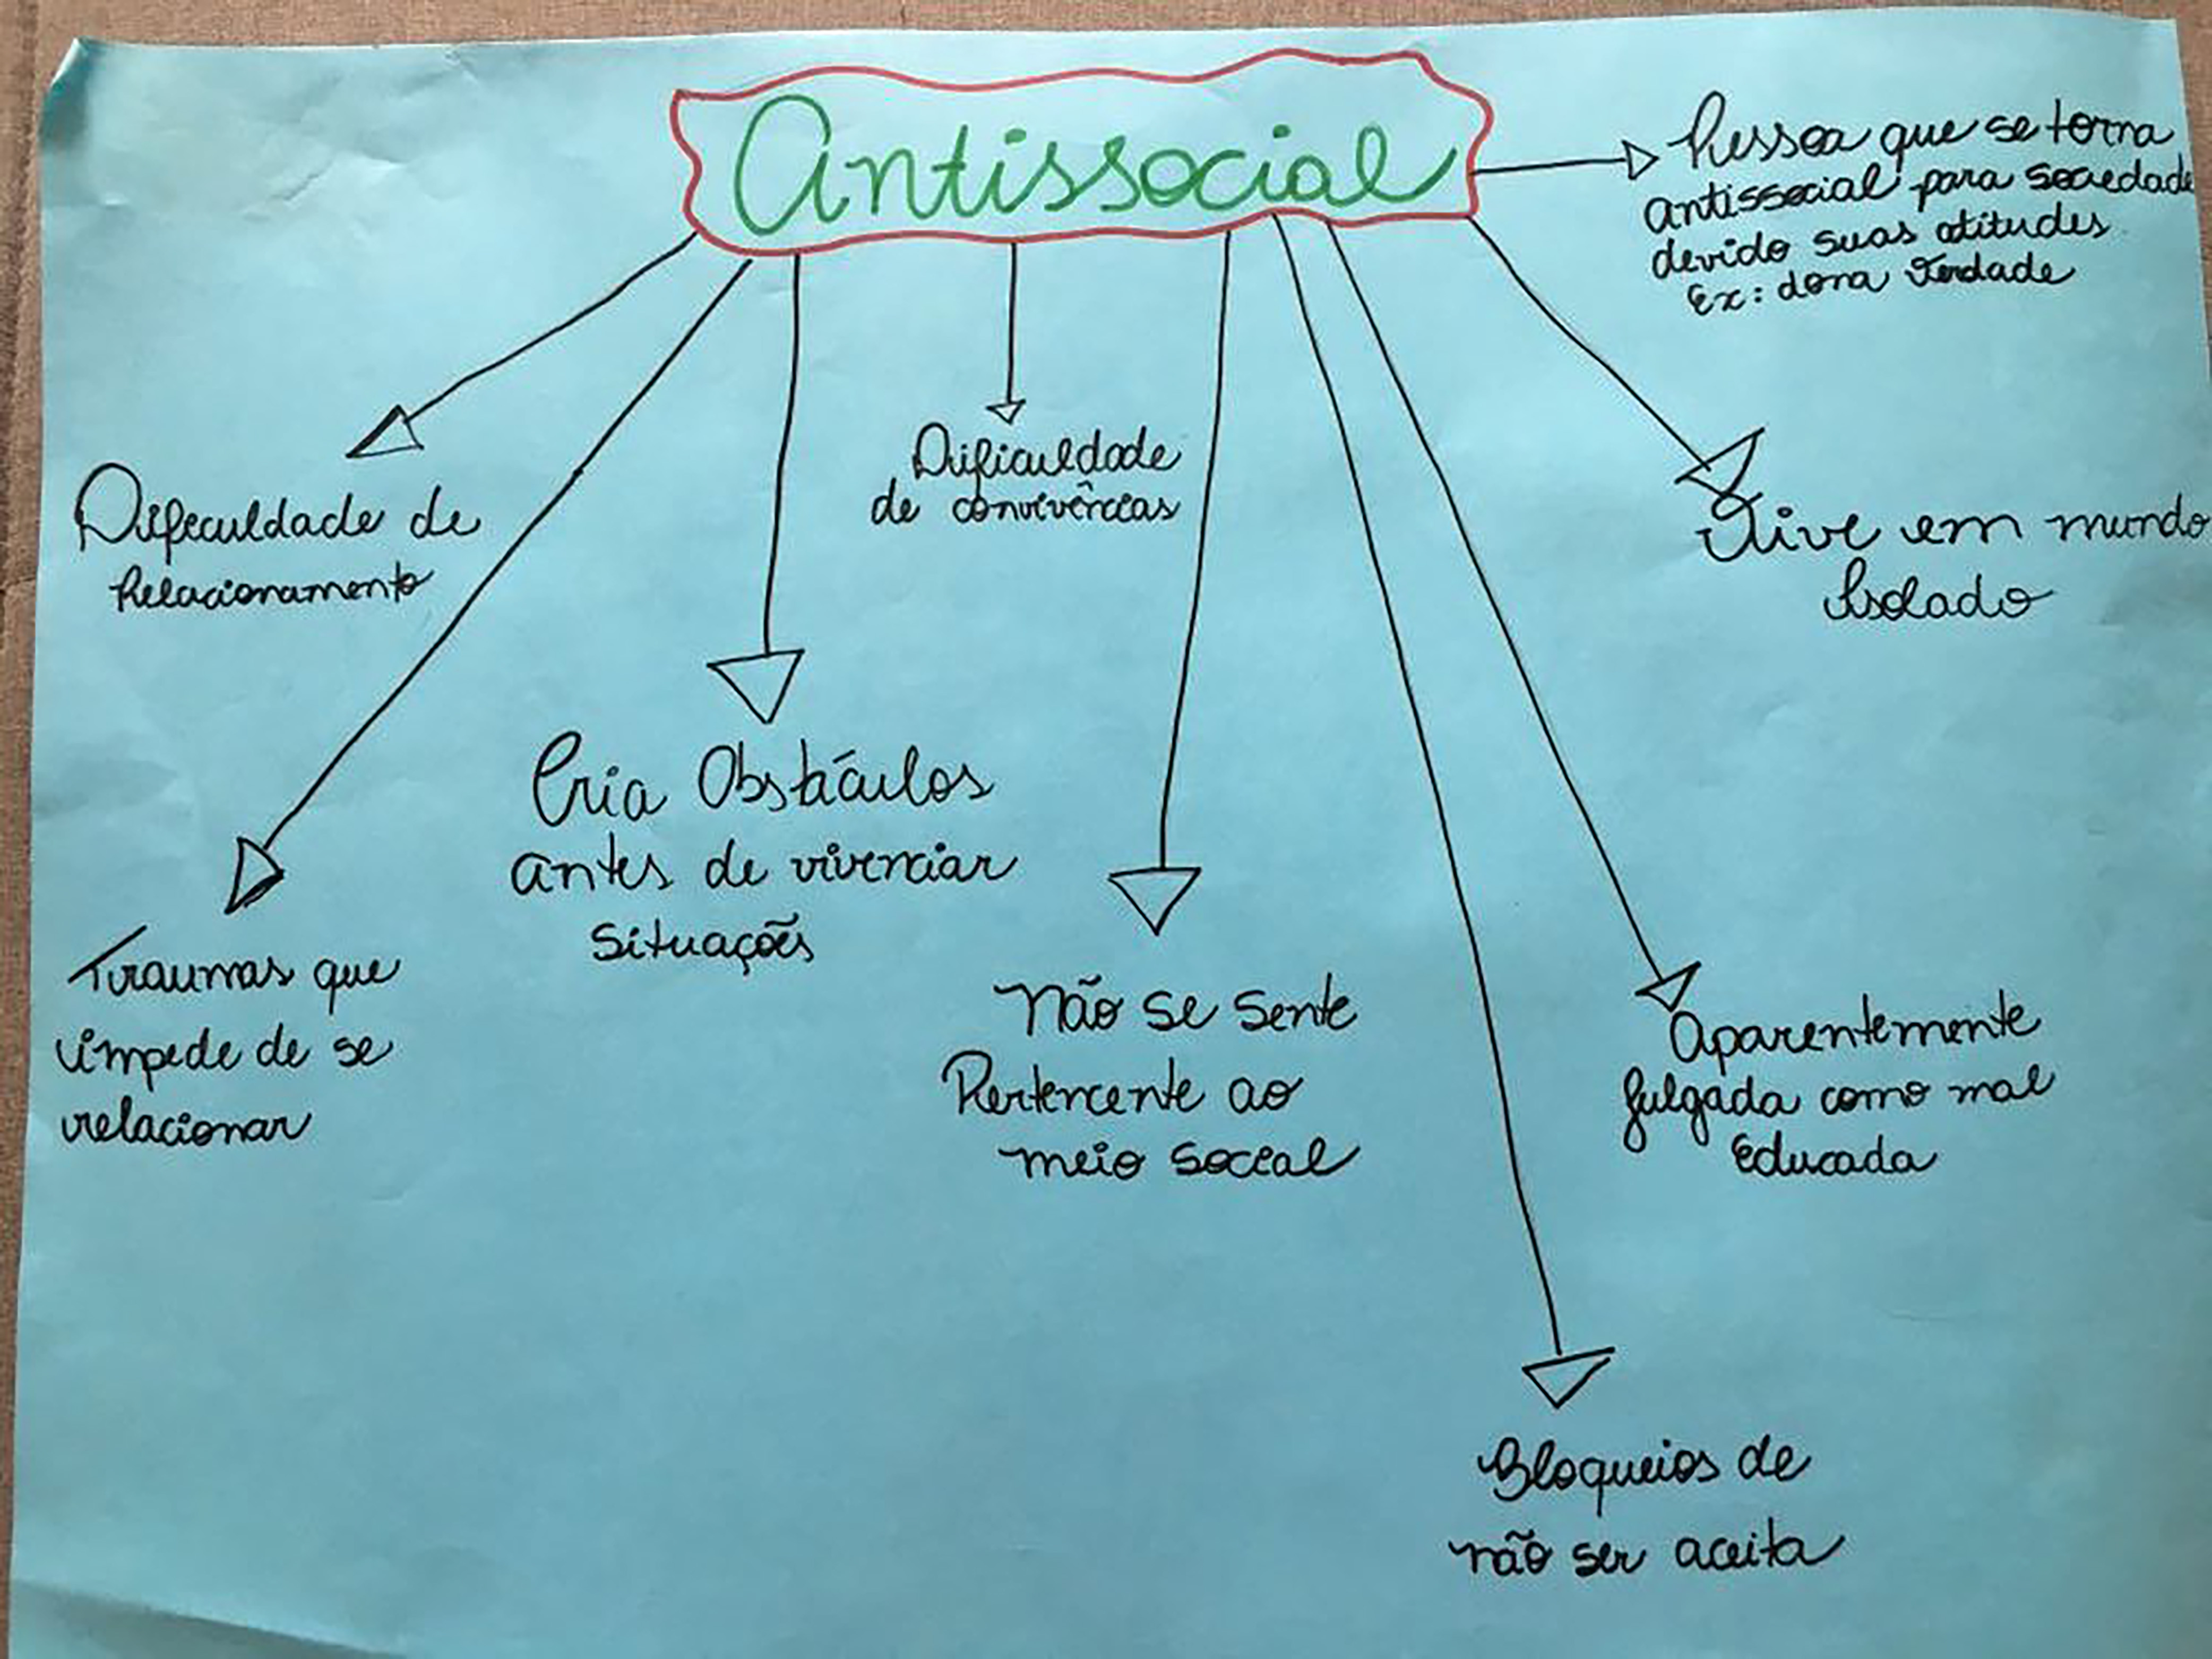 Antissocial
Pessoa que se torna
antissocial para sociedade
devido suas atitudes
Ex: dona Verdade
Dificuldade de
Relacionamento
Dificuldade
de convivências
Vive em mundo
Isolado
Cria Obstáculos
antes de vivenciar
Situações
Traumas que
impede de se
relacionar
Não se sente
Pertencente ao
meio social
Aparentemente
julgada como mal
Educada
Bloqueios de
não ser aceita